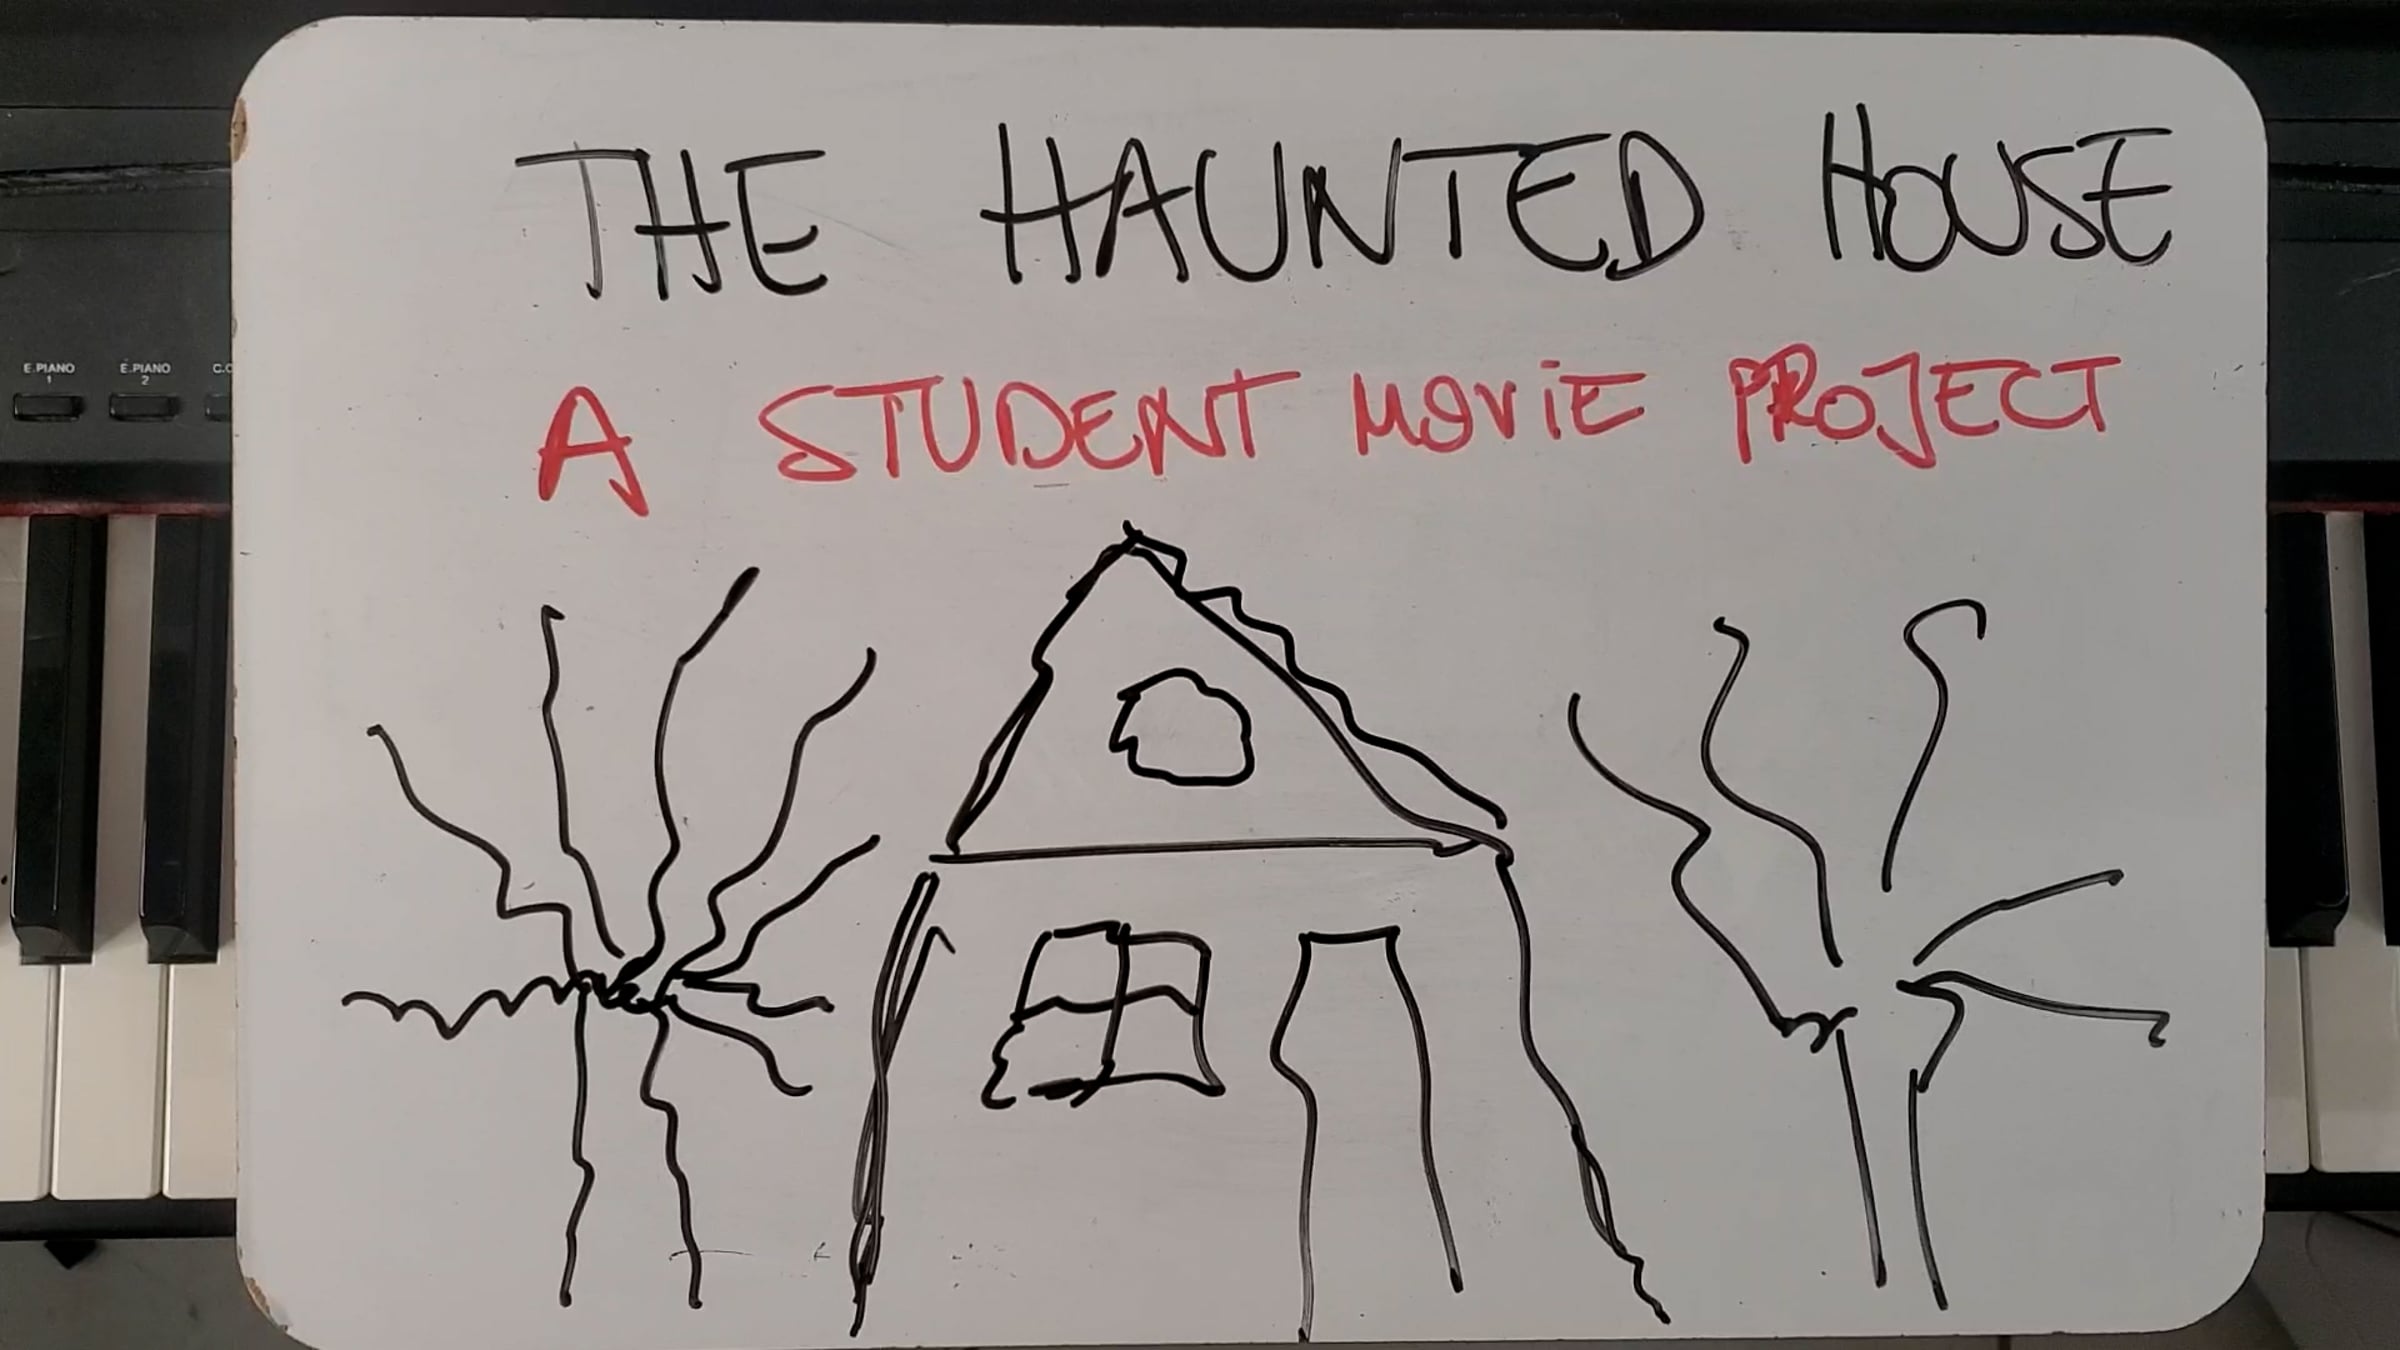 THE HAUNTED HOUSE
A STUDENT MOViE PROJECT
E.PIANO
1
E.PIANO
2